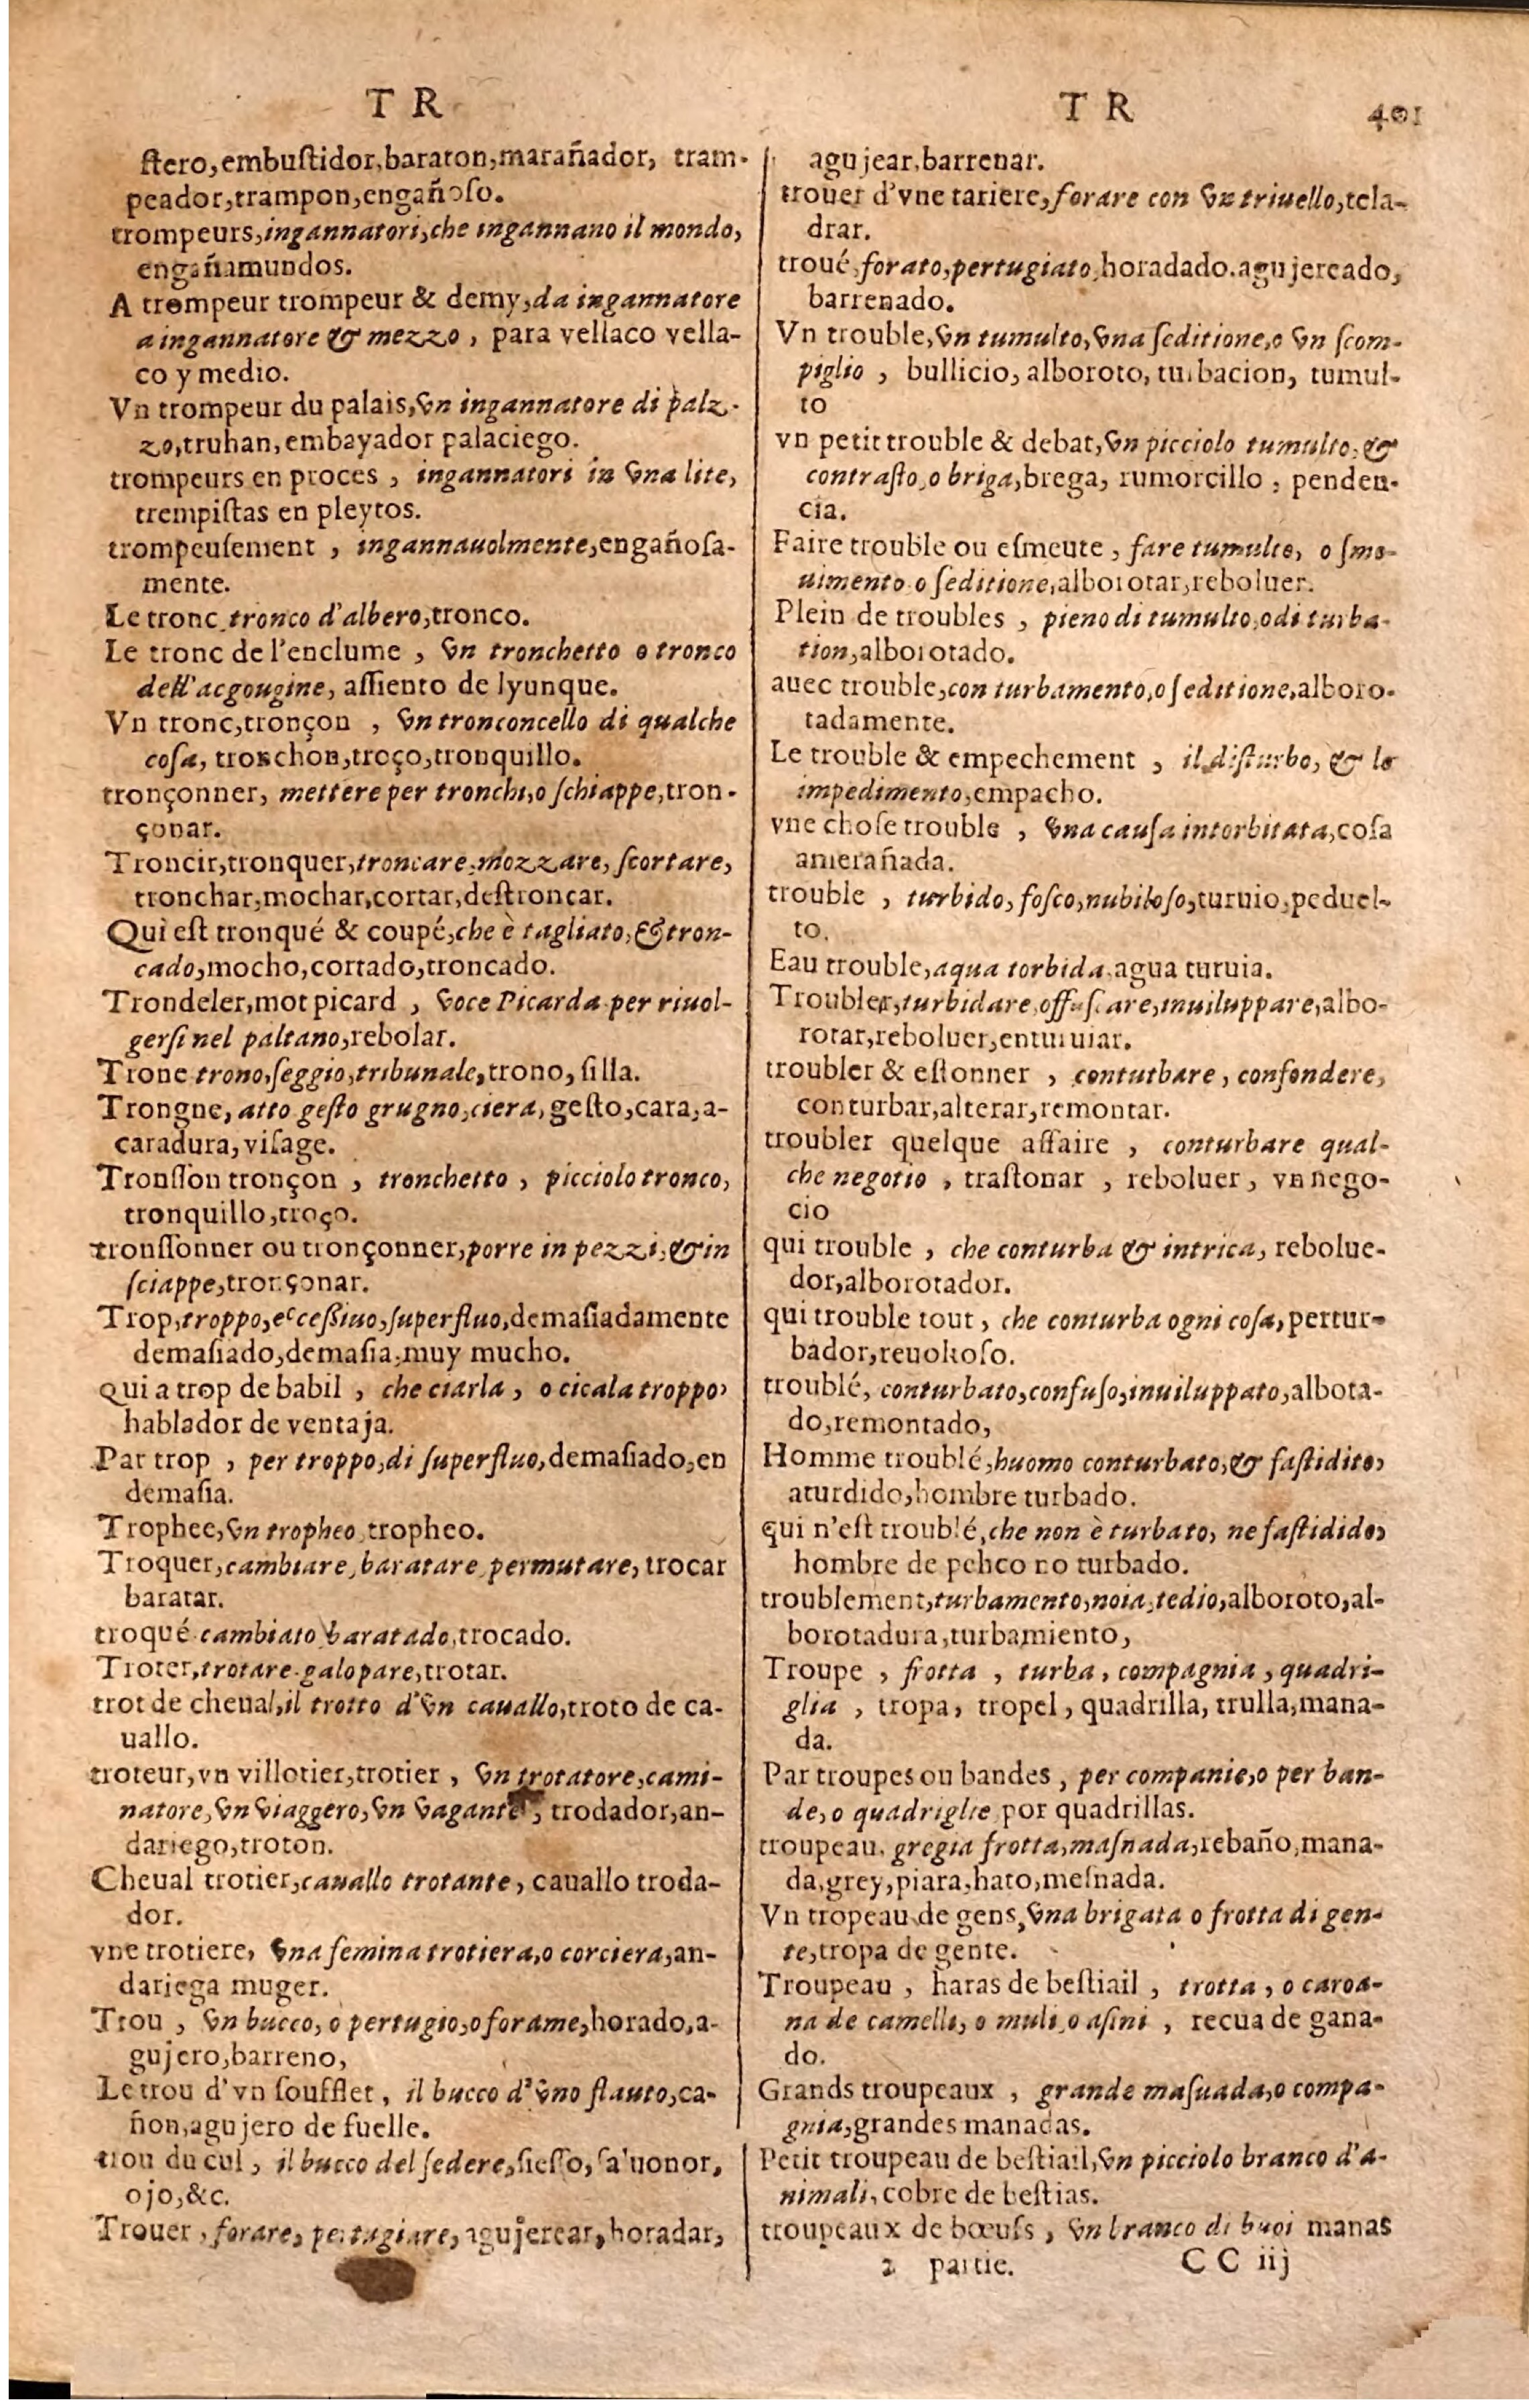 T R
ſtero,embuſtidor,baraton,marañador, tram-
peador,trampon,engañoſo.
trompeurs,ingannatori,che ingannano il mondo,
engañamundos.
A trompeur trompeur & demy,da ingannatore
a ingannatore & mezzo , para vellaco vella-
co y medio.
Vn trompeur du palais,vn ingannatore di palz-
zo,truhan,embayador palaciego.
trompeurs en proces , ingannatori in vna lite,
trempiſtas en pleytos.
trompeuſement , ingannauolmente,engañoſa-
mente.
Le tronc,tronco d'albero,tronco.
Le tronc de l'enclume , vn tronchetto o tronco
dell'acgougine, aſſiento de lyunque.
Vn tronc,tronçon , vn tronconcello di qualche
coſa, tronchon,troço,tronquillo.
tronçonner, mettere per tronchi,o ſchiappe,tron-
çonar.
Troncir,tronquer,troncare,mozzare, ſcortare,
tronchar,mochar,cortar,deſtroncar.
Qui eſt tronqué & coupé,che è tagliato,& tron-
cado,mocho,cortado,troncado.
Trondeler,mot picard , voce Picarda per riuol-
gerſi nel paltano,rebolar.
Trone trono,ſeggio,tribunale,trono, ſilla.
Trongne, atto geſto grugno,ciera, geſto,cara,a-
caradura, viſage.
Tronſſon tronçon , tronchetto , picciolo tronco,
tronquillo,troço.
tronſſonner ou tronçonner,porre in pezzi,& in
ſciappe,tronçonar.
Trop,troppo,ecceſſiuo,ſuperfluo,demaſiadamente
demaſiado,demaſia,muy mucho.
Qui a trop de babil , che ciarla , o cicala troppo,
hablador de ventaja.
Par trop , per troppo,di ſuperfluo,demaſiado,en
demaſia.
Trophee,vn tropheo,tropheo.
Troquer,cambiare,baratare,permutare, trocar
baratar.
troqué cambiato baratado,trocado.
Troter,trotare galopare,trotar.
trot de cheual,il trotto d'vn cauallo,troto de ca-
uallo.
troteur,vn villotier,trotier , vn trotatore,cami-
natore,vn viaggero,vn vagante , trodador,an-
dariego,troton.
Cheual trotier,cauallo trotante, cauallo troda-
dor.
vne trotiere, vna femina trotiera,o corciera,an-
dariega muger.
Trou , vn bucco, o pertugio,o forame,horado,a-
gujero,barreno,
Le trou d'vn soufflet , il bucco d'vno flauto,ca-
ñon,agujero de fuelle.
trou du cul , il bucco del ſedere,ſieſſo, ſa'uonor,
ojo,&c.
Trouer , forare, pertugiare, agujerear, horadar,
T R 401
agujear,barrenar.
trouer d'vne tariere,forare con vn triuello,tela-
drar.
troué,forato,pertugiato,horadado.agujereado,
barrenado.
Vn trouble,vn tumulto,vna ſeditione,o vn ſcom-
piglio , bullicio, alboroto, turbacion, tumul-
to
vn petit trouble & debat,vn picciolo tumulto,&
contraſto,o briga,brega, rumorcillo , penden-
cia.
Faire trouble ou eſmeute , fare tumulto, o ſmo-
uimento o ſeditione,alborotar,reboluer.
Plein de troubles , pieno di tumulto,o di turba-
tion,alborotado.
auec trouble,con turbamento,o ſeditione,alboro-
tadamente.
Le trouble & empechement , il diſturbo, & lo
impedimento,empacho.
vne choſe trouble , vna cauſa intorbitata,coſa
amerañada.
trouble , turbido, foſco,nubiloſo,turuio,peduel-
to.
Eau trouble,aqua torbida,agua turuia.
Troubler,turbidare,offuſcare,inuiluppare,albo-
rotar,reboluer,enturuiar.
troubler & eſtonner , conturbare , confondere,
conturbar,alterar,remontar.
troubler quelque affaire , conturbare qual-
che negotio , traſtonar , reboluer, vn nego-
cio
qui trouble , che conturba & intrica, rebolue-
dor,alborotador.
qui trouble tout , che conturba ogni coſa,pertur-
bador,reuoltoſo.
troublé, conturbato,confuſo,inuiluppato,albota-
do,remontado,
Homme troublé,huomo conturbato,& faſtidito,
aturdido,hombre turbado.
qui n'eſt troublé,che non è turbato, ne faſtidido,
hombre de pehco no turbado.
troublement,turbamento,noia,tedio,alboroto,al-
borotadura,turbamiento,
Troupe , frotta , turba , compagnia , quadri-
glia , tropa, tropel, quadrilla, trulla,mana-
da.
Par troupes ou bandes , per companie,o per ban-
de, o quadriglie por quadrillas.
troupeau, gregia frotta,maſnada,rebaño,mana-
da,grey,piara,hato,meſnada.
Vn tropeau de gens,vna brigata o frotta di gen-
te,tropa de gente.
Troupeau , haras de beſtiail , trotta , o caroa-
na de camelli, o muli,o aſini , recua de gana-
do.
Grands troupeaux , grande maſuada,o compa-
gnia,grandes manadas.
Petit troupeau de beſtiail,vn picciolo branco d'a-
nimali, cobre de beſtias.
troupeaux de bœufs , vn branco di buoi manas
2 partie. C C iij